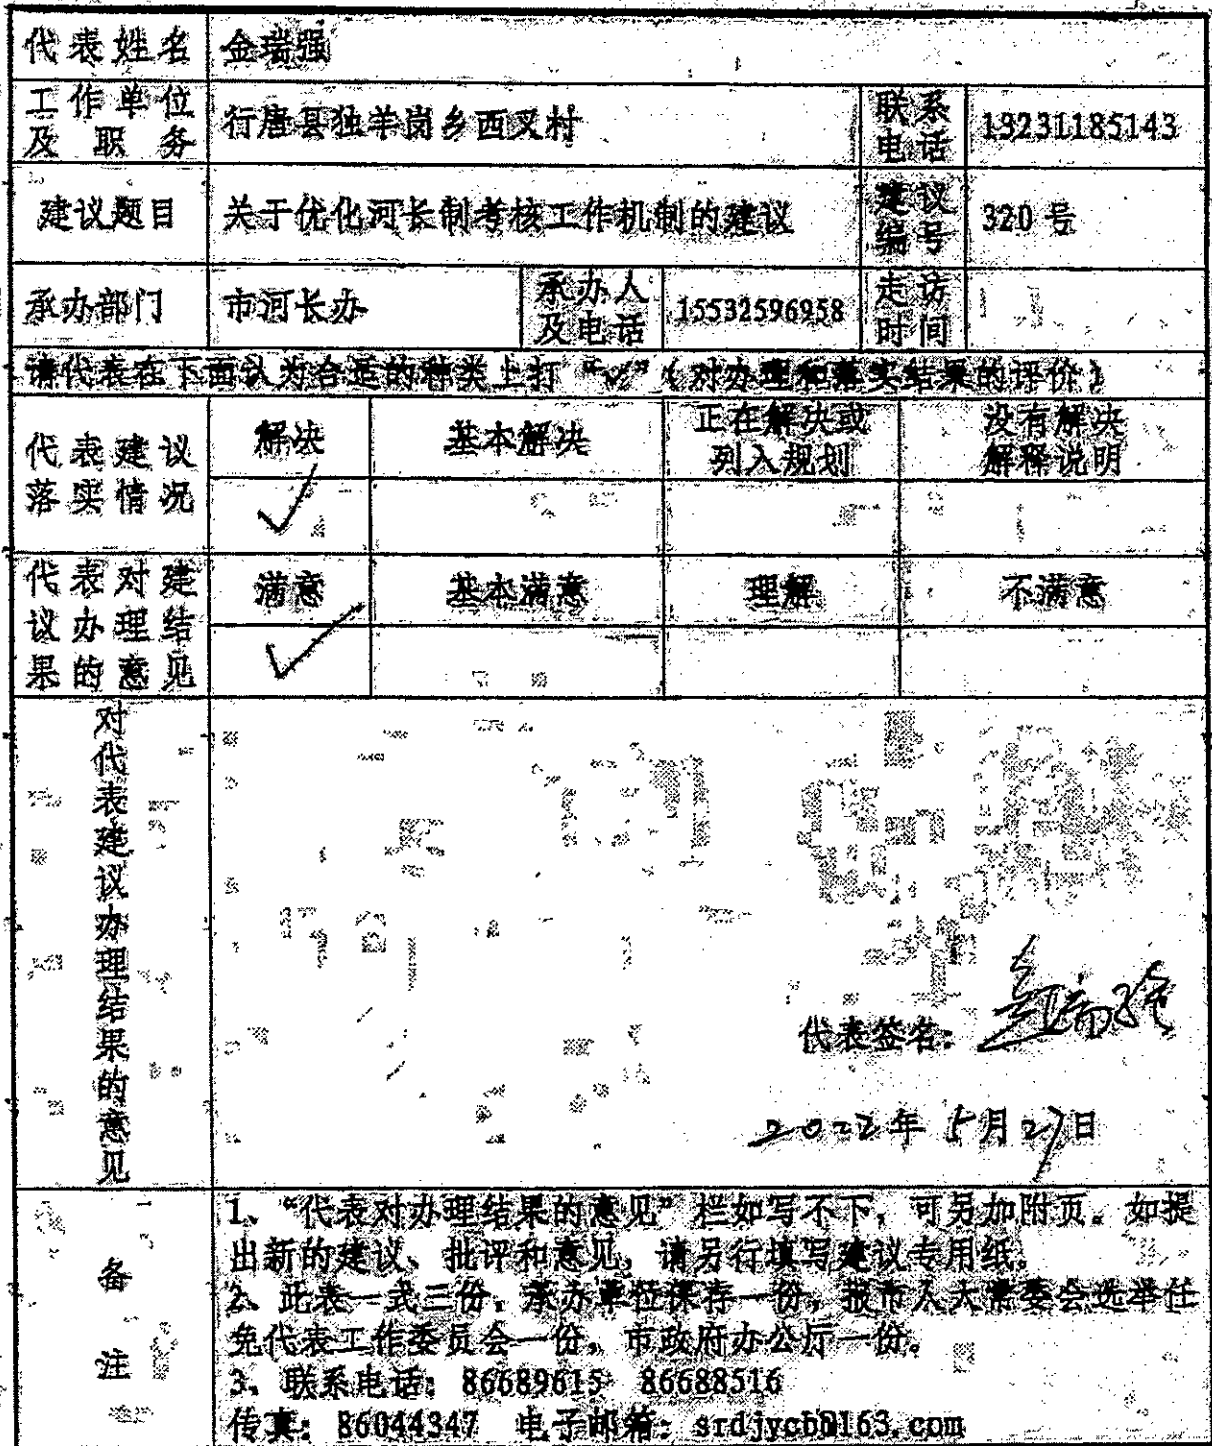 代表姓名 金瑞强
工作单位及职务 行唐县独羊岗乡西叉村 联系电话 13231185143
建议题目 关于优化河长制考核工作机制的建议 建议编号 320号
承办部门 市河长办 承办人及电话 15532596958 走访时间
请代表在下面认为合适的种类上打“√”(对办理和落实结果的评价)
代表建议落实情况 解决 基本解决 正在解决或列入规划 没有解决解释说明
√
代表对建议办理结果的意见 满意 基本满意 理解 不满意
√
对代表建议办理结果的意见
代表签名: 金瑞强
2022年5月27日
备注
1、“代表对办理结果的意见”栏如写不下,可另加附页。如提
出新的建议、批评和意见,请另行填写建议专用纸。
2、此表一式三份,承办单位保存一份,报市人大常委会选举任
免代表工作委员会一份,市政府办公厅一份。
3、联系电话: 86689615 86688516
传真: 86044347 电子邮箱: srdjycb@163.com